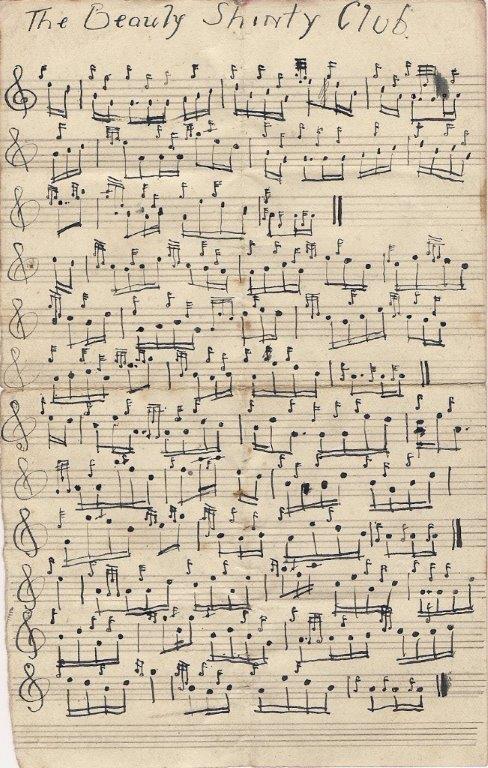 The Beauly Shinty Club.